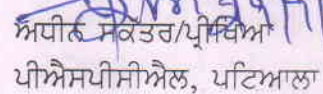 ਅਧੀਨ ਸਕੱਤਰ/ਪ੍ਰੀਖਿਆ
ਪੀਐਸਪੀਸੀਐਲ, ਪਟਿਆਲਾ